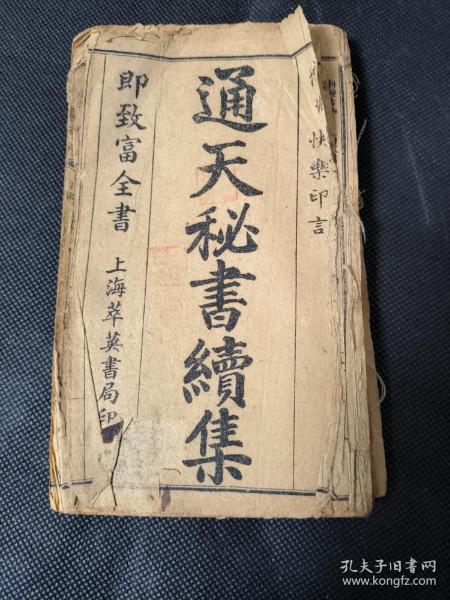 快樂印言
通天秘書續集
即致富全書
上海萃英書局印
孔夫子旧书网
www.kongfz.com